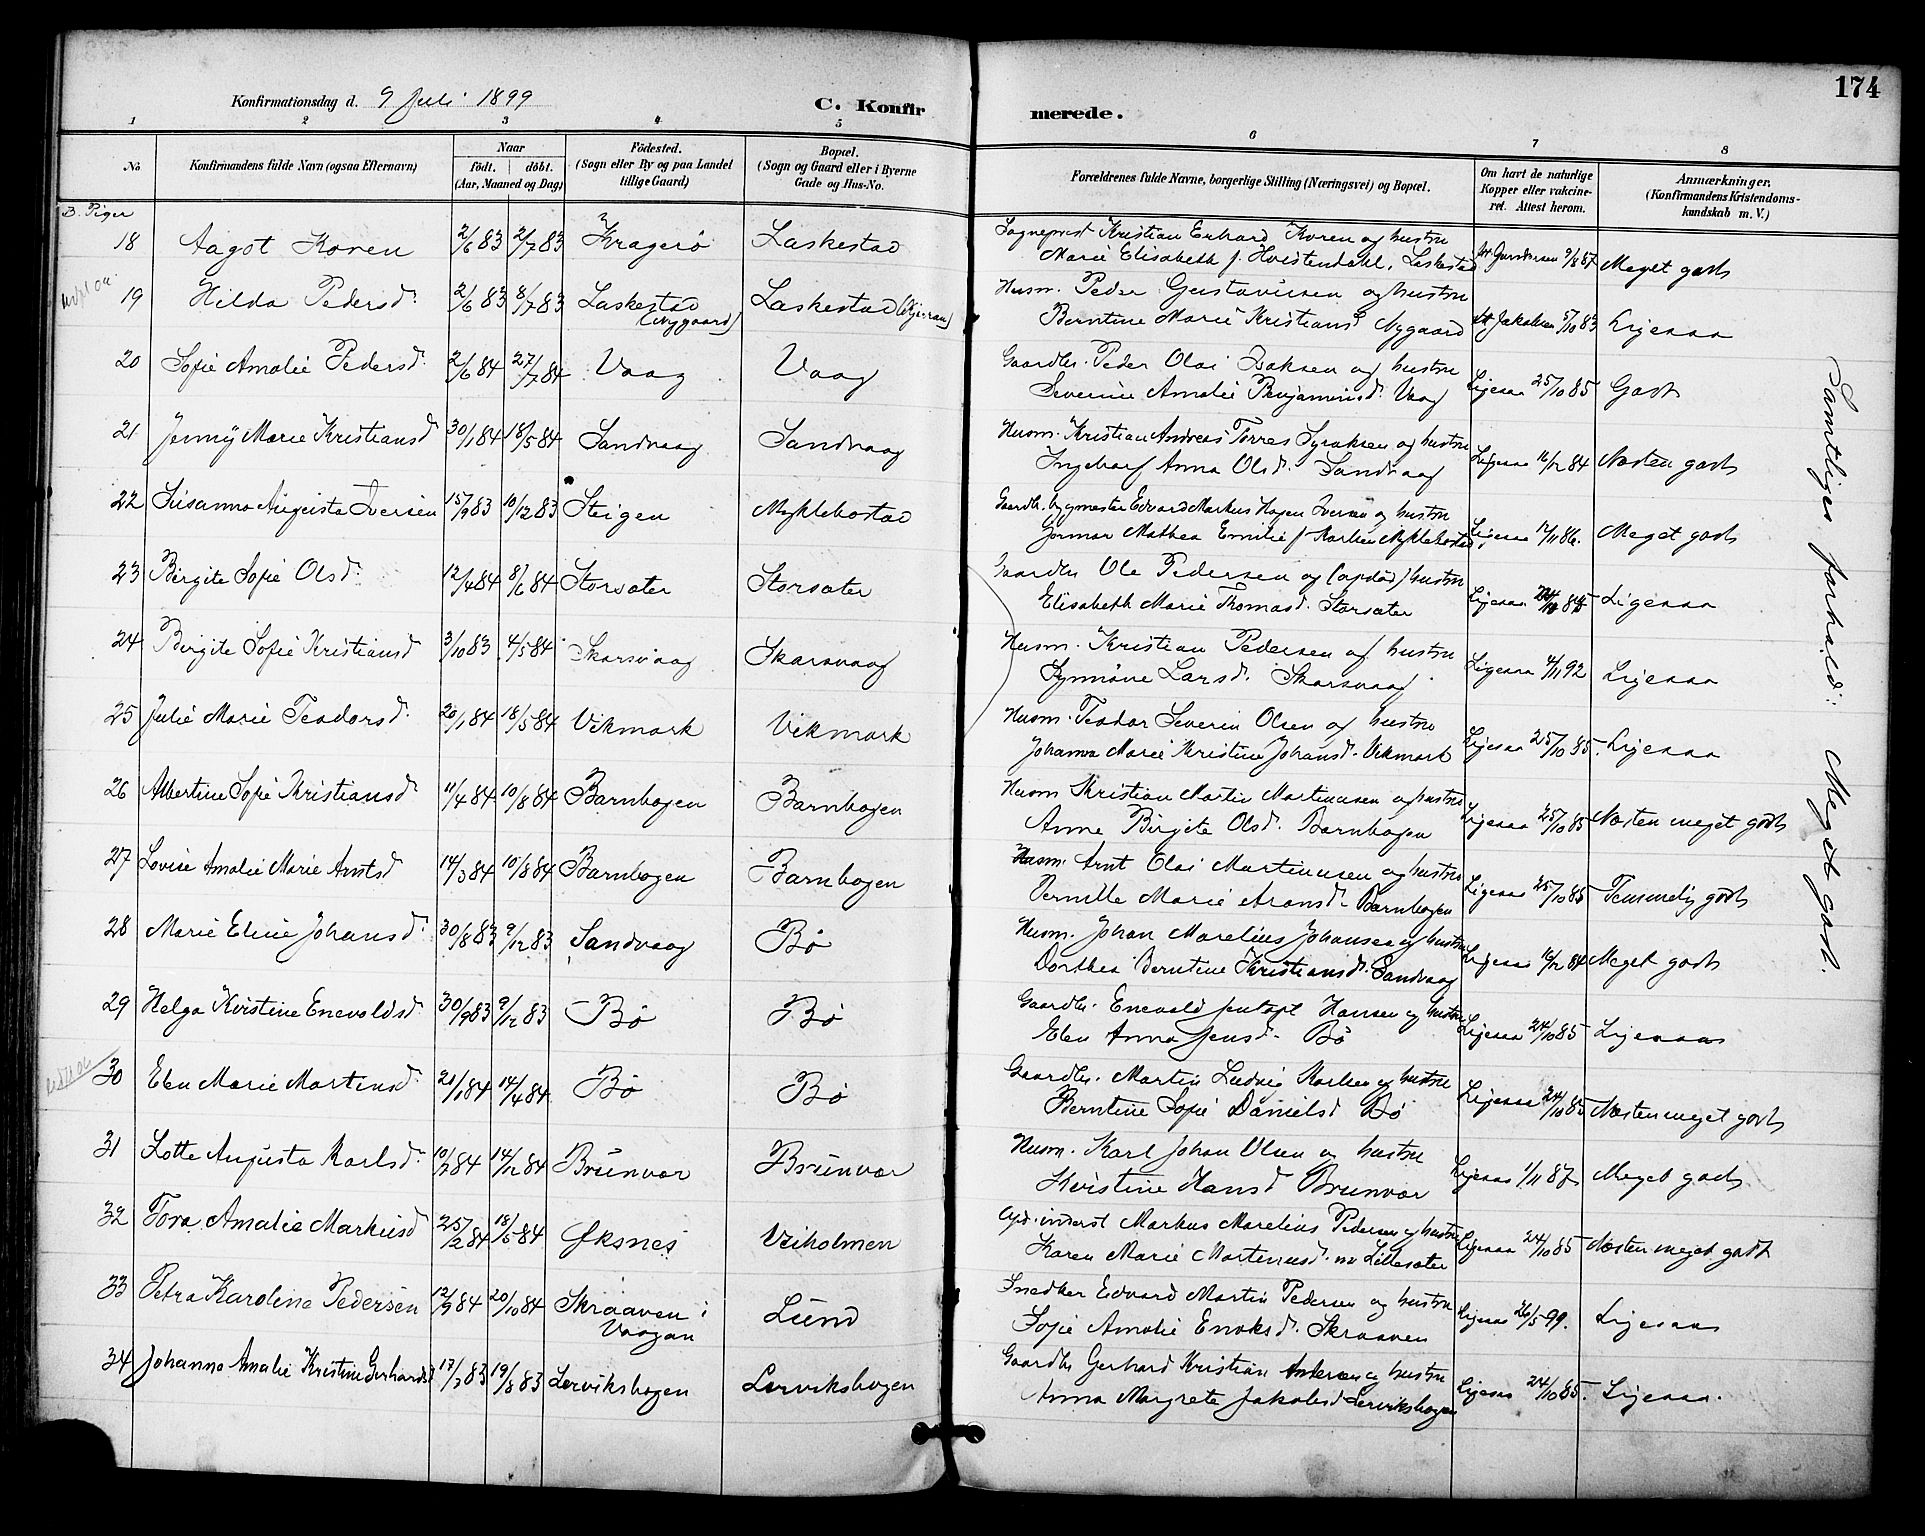 174
Konfirmationsdag d. 9 Juli 1899
C. Konfirmerede.
1 2 3 4 5 6 7 8
No
Konfirmandens fulde Navn (ogsaa Efternavn)
Naar
födt. döbt.
(Aar, Maaned og Dag)
Födested.
(Sogn eller By og paa Landet
tillige Gaard)
Bopæl.
(Sogn og Gaard eller i Byerne
Gade og Hus-No.
Forældrenes fulde Navne, borgerlige Stilling (Næringsvei) og Bopæl.
Om havt de naturlige
Kopper eller vakcine-
ret. Attest herom.
Anmærkninger.
(Konfirmandens Kristendoms-
kundskab m. V.)
B. Piger
18 Aagot Koren 2/6 83 2/7 83 Kragerö Laskestad Sogneprest Kristian Erhard Koren og hustru
Marie Elisabeth f. Hvistendahl, Laskestad Gundersen 9/8 87 Meget godt
19 Hilda Pedersd. 2/6 83 8/7 83 Laskestad (Nygaard) Laskestad Husm. Peder Gustavusen og hustru
Berntine Marie Kristiansd Nygaard Jakobsen 5/10 83 Ligesaa
20 Sofie Amalie Pedersd. 2/6 84 27/7 84 Vaag Vaag Gaardbr. Peder Olai Isaksen og hustru
Severine Amalie Benjaminsd. Vaag Ligesaa 25/10 85 Godt
21 Jenny Marie Kristiansd 30/1 84 18/5 84 Sandvaag Sandvaag Husm. Kristian Andreas Torres Syvaksen og hustru
Ingeborg Anna Olsd. Sandvaag Ligesaa 16/12 84 Næsten godt
22 Susanna Augusta Iversen 15/9 83 10/12 83 Steigen Myklebostad Gaardbr. bygmester Edvard Markus Hagen Iversen og hustru
Mathea Emilie f. Karlsen Myklebostad Ligesaa 17/11 86. Meget godt
23 Birgite Sofie Olsd. 12/4 84 8/6 84 Storsæter Storsæter Gaardbr Ole Pedersen og (opdöd) hustru
Elisabeth Marie Thomasd. Storsæter Ligesaa Ligesaa
24 Birgite Sofie Kristiansd 3/10 83 4/5 84 Skarsvaag Skarsvaag Husm. Kristian Pedersen og hustru
Synnöve Larsd. Skarsvaag Ligesaa 4/11 92 Ligesaa
25 Julie Marie Teodorsd. 20/1 84 18/5 84 Vikmark Vikmark Husm. Teodor Severin Olsen og hustru
Johanna Marie Kristine Johansd. Vikmark Ligesaa 25/10 85. Ligesaa
26 Albertine Sofie Kristiansd 11/4 84 10/8 84 Barnbogen Barnbogen Husm Kristian Martin Martinusen og hustru
Anne Birgite Olsd. Barnbogen Ligesaa 25/10 85 Næsten meget godt
27 Lovise Amalie Marie Arntsd 14/3 84 10/8 84 Barnbogen Barnbogen Husm. Arnt Olai Martinusen og hustru
Pernille Marie Aronsd. Barnbogen Ligesaa 25/10 85 Temmelig godt
28 Marie Eline Johansd. 30/8 83 9/12 83 Sandvaag Bö Husm. Johan Marelius Johansen og hustru
Dorthea Berntine Kristiansd. Sandvaag Ligesaa 16/12 84 Meget godt
29 Helga Kristine Enevoldsd. 30/9 83 9/12 83 Bö Bö Gaardbr. Enevold Jentoft Hansen og hustru
Elen Anna Jensd. Bö Ligesaa 24/10 85 Ligesaa
30 Elen Marie Martinsd. 20/1 84 14/4 84 Bö Bö Gaardbr. Martin Ludvig Karlsen og hustru
Berntine Sofie Danielsd Bö Ligesaa 24/10 85 Næsten meget godt
31 Lotte Augusta Karlsd. 10/7 84 14/12 84 Brunvær Brunvær Husm. Karl Johan Olsen og hustru
Kristine Hansd Brunvær Ligesaa 1/11 87. Meget godt
32 Tora Amalie Markusd 25/2 84 18/5 84 Öksnes Veiholmen Opd. inderst Markus Marelius Pedersen og hustru
Karen Marie Martinusd. nu Lillesæter Ligesaa 24/10 85 Næsten meget godt
33 Petra Karoline Pedersen 12/9 84 20/10 84 Skraaven i Vaagan Lund Snedker Edvard Martin Pedersen og hustru
Sofie Amalie Enoksd. Skraaven Ligesaa 26/5 99. Ligesaa
34 Johanna Amalie Kristine Gerhardsd 17/7 83 19/8 83 Lerviksbogen Lerviksbogen Gaardbr Gerhard Kristian Andersen og hustru
Anna Margrete Jakobsd Lerviksbogen Ligesaa 24/10 85. Ligesaa.
Samtliges forhold: Meget godt.